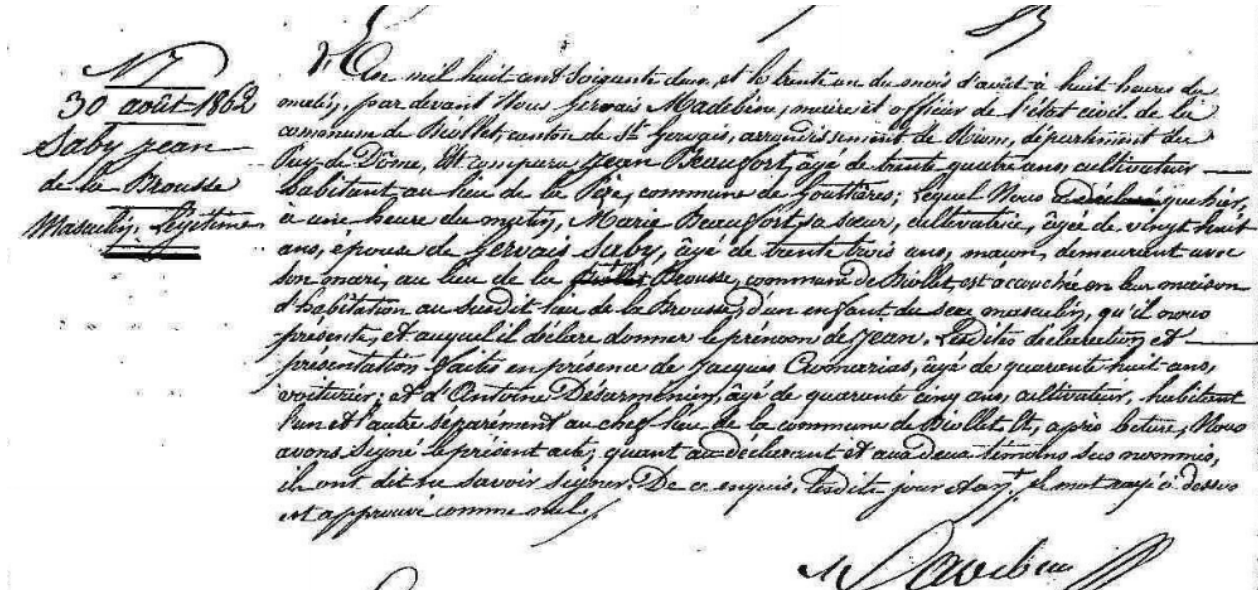 N 7
30 août 1862
Saby Jean
de la Brousse
Masculin, légitime
L'An mil huit cent soixante deux, et le trente un du mois d'août à huit heures du
matin, par devant Nous Gervais Madebène, maire et officier de l'état civil de la
commune de Biollet, canton de St Gervais, arrondissement de Riom, département du
Puy-de-Dôme, Est comparu Jean Beaufort, âgé de trente quatre ans, cultivateur
habitant au lieu de la commune de Gouttières; Lequel Nous a déclaré que hier,
à une heure du matin, Marie Beaufort, sa sœur, cultivatrice, âgée de vingt huit
ans, épouse de Gervais Saby, âgé de trente trois ans, maçon, demeurant avec
son mari, au lieu de la Brousse, commune de Biollet, est acouchée en leur maison
d'habitation au susdit lieu de la Brousse, d'un enfant du sexe masculin, qu'il nous
présente, et auquel il déclare donner le prénom de Jean. Lesdites déclaration et
présentation faites en présence de Jacques âgé de quarante huit ans,
voiturier; et d'Antoine Désarménien, âgé de quarante cinq ans, cultivateur, habitant
l'un et l'autre séparément au chef-lieu de la commune de Biollet. Et, après lecture, Nous
avons signé le présent acte; quant au déclarant et aux deux témoins sus nommés,
ils ont dit ne savoir signer. De ce enquis, lesdits jour et an. + le mot rayé ci dessus
est approuvé comme nul.